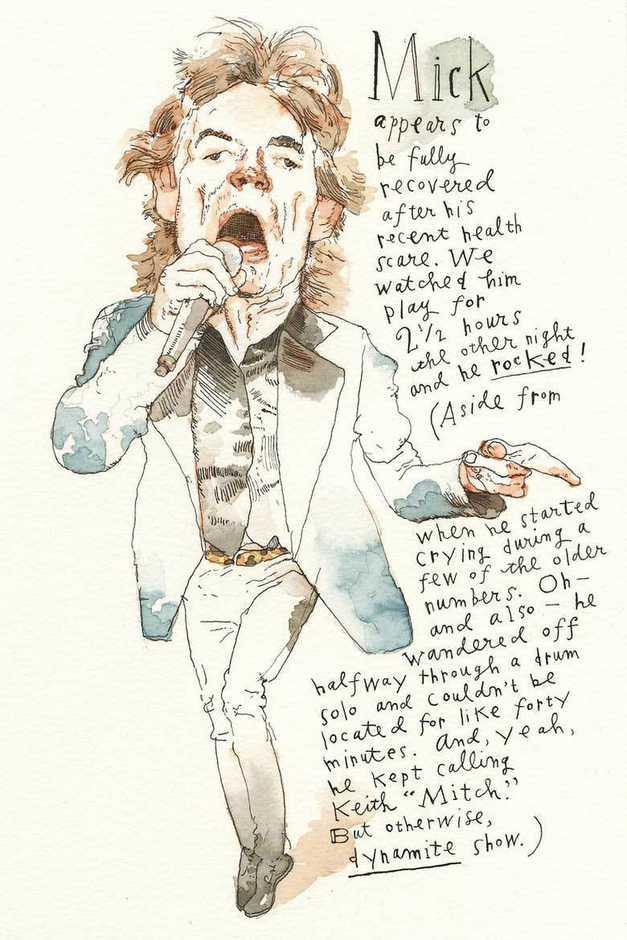 Mick
appears to
be fully
recovered
after his
recent health
scare. We
watched him
play for
2 1/2 hours
the other night
and he rocked!
(Aside from
when he started
crying during a
few of the older
numbers. Oh—
and also — he
wandered off
halfway through a drum
solo and couldn't be
located for like forty
minutes. And, yeah,
he kept calling
Keith "Mitch."
But otherwise,
dynamite show.)